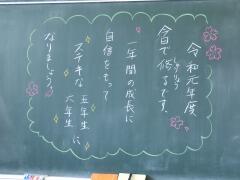 令和元年度
今日で修了です。
しゅうりょう
一年間の成長に
自信をもって
ステキな五年生に
六年生
なりましょう。